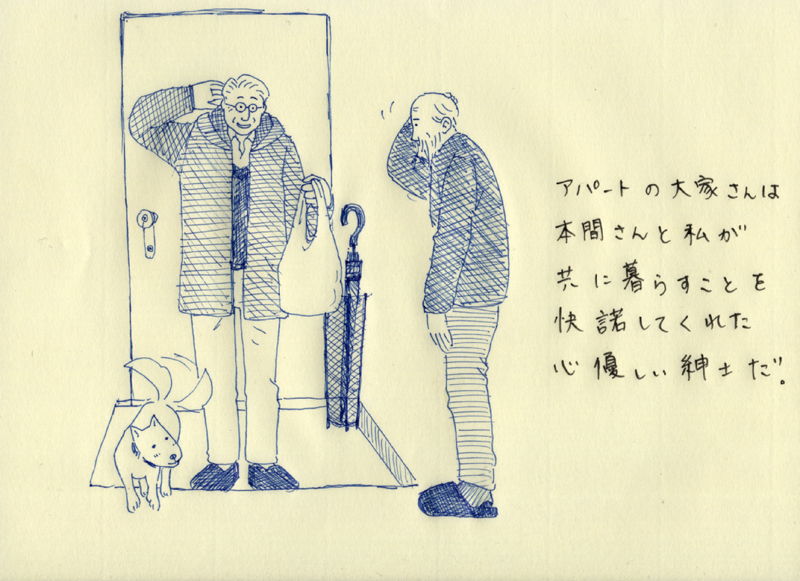 アパートの大家さんは
本間さんと私が
共に暮らすことを
快諾してくれた
心優しい紳士だ。